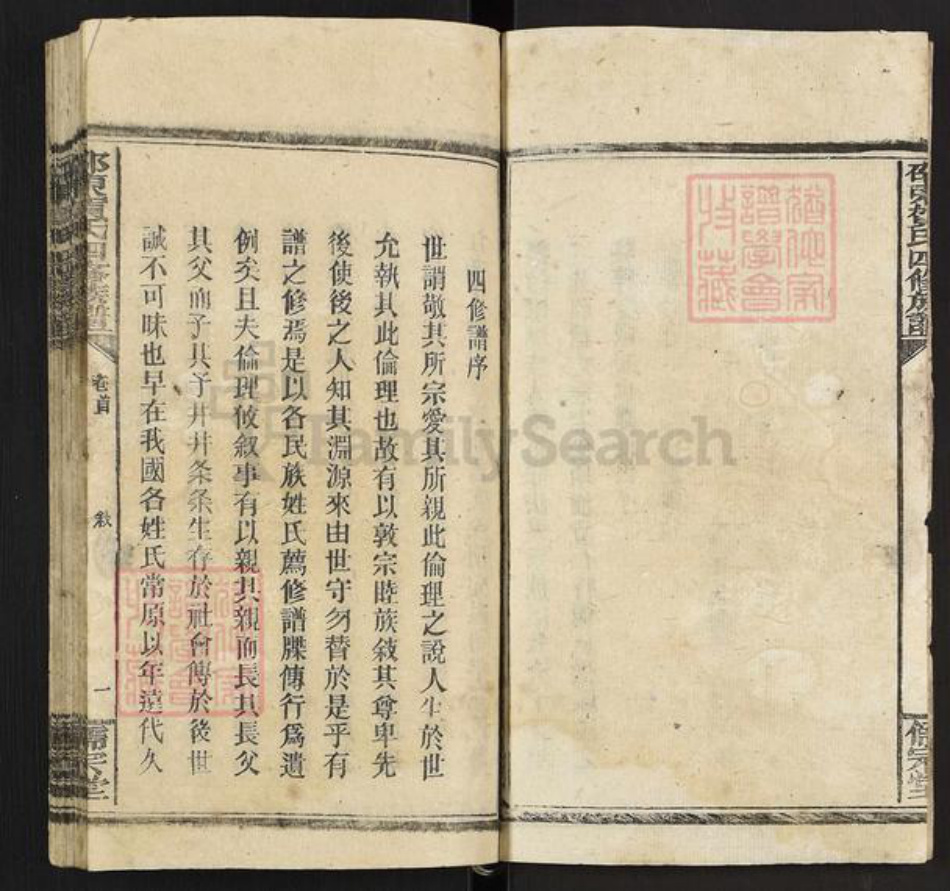 四修譜序
世謂敬其所宗愛其所親此倫理之說人生於世
允執其此倫理也故有以敦宗睦族敍其尊卑先
後使後之人知其淵源來由世守勿替於是乎有
譜之修焉是以各民族姓氏薦修譜牒傳行為遺
例矣且夫倫理攸叙事有以親其親而長其長父
其父而子其子井井条条生存於社會傳於後世
誠不可昧也早在我國各姓氏常原以年遠代久
卷首
敘
一
氏四修族譜
FamilySearch